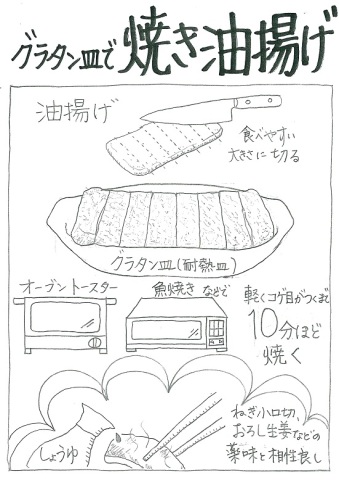 グラタン皿で焼き油揚げ
油揚げ
食べやすい
大きさに切る
グラタン皿(耐熱皿)
オーブントースター
魚焼きなどで
軽くコゲ目がつくまで
10分ほど
焼く
しょうゆ
ねぎ小口切、
おろし生姜などの
薬味と相性良し